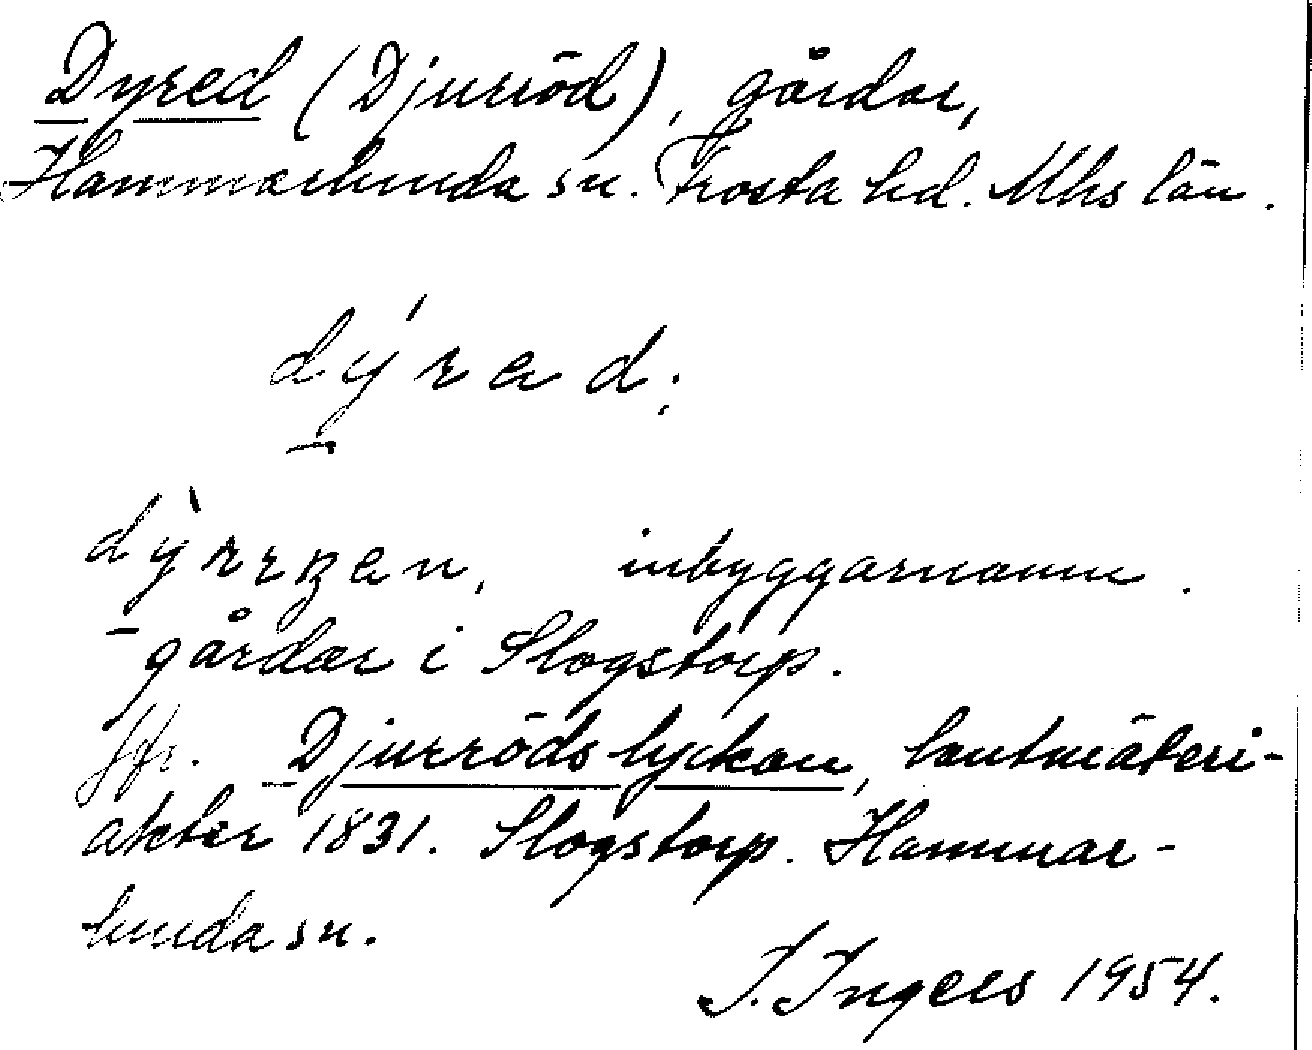 Dyred (Djurröd), gårdar,
Hammarlunda sn. Frosta hd. Mhs län.
dýrad;
dỳrrꞫan, inbyggarnamn.
gårdar i Slogstorp.
Jfr. Djurrödslyckan, lantmäteri-
akter 1831. Slogstorp. Hammar-
lunda sn.
I. Ingers 1954.